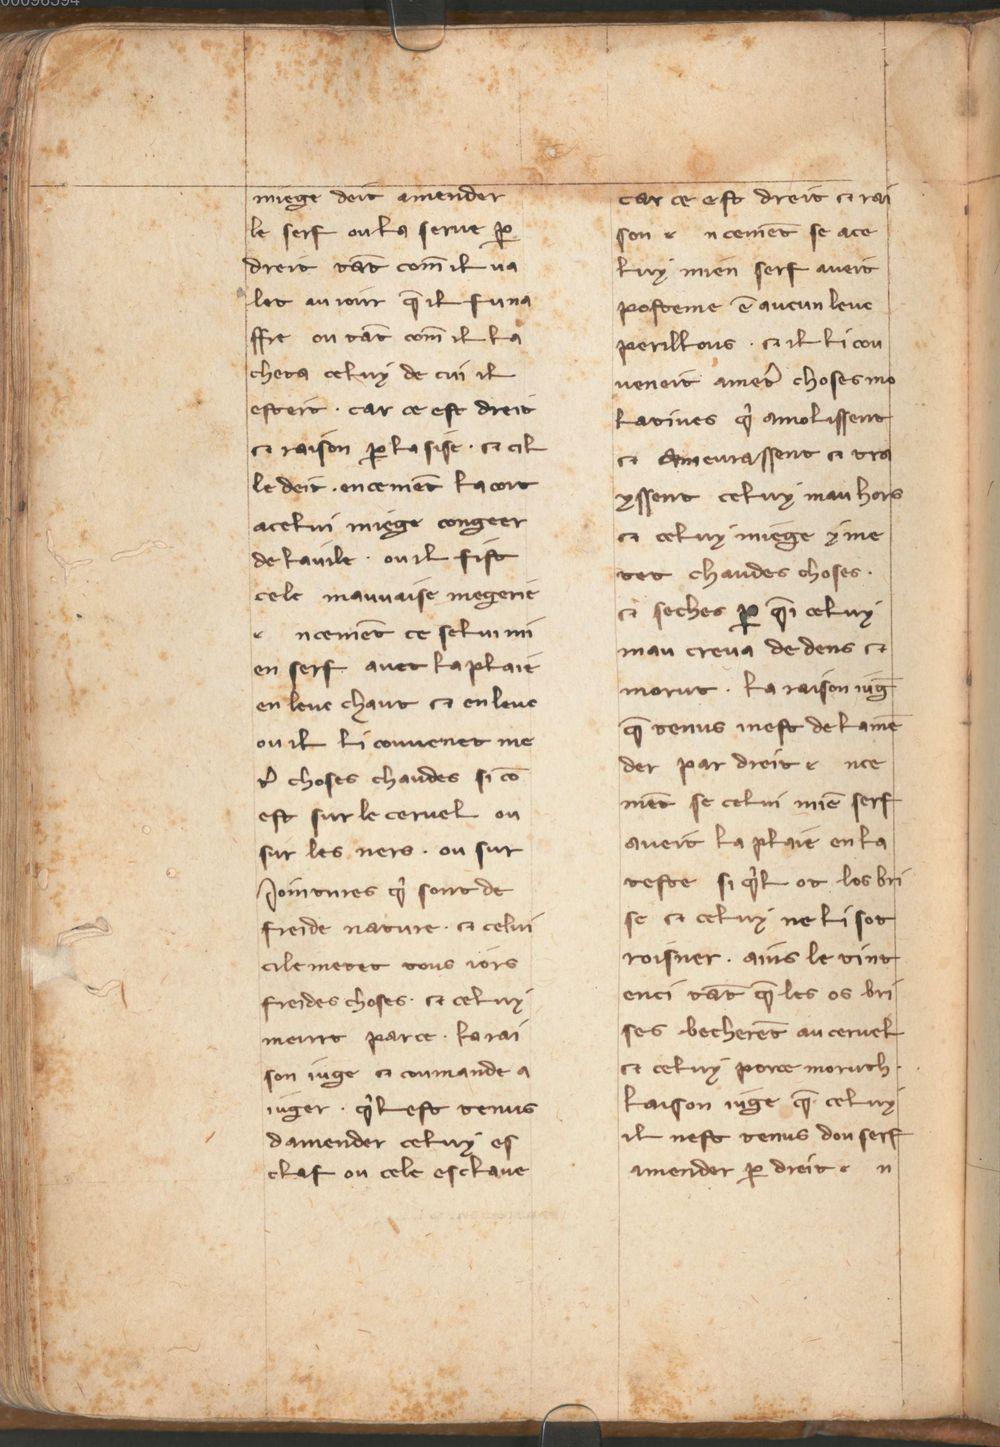 00096394
miege deit amender
le serf ou la serue ꝑ
dreit tãt com̃ il ua
let au iour q̃ il funa
ffre ou tãt com̃ il la
cheta celuy de cui il
esteit · car ce est dreit
⁊ raison ꝑ la sise · ⁊ cil
le deit · encemẽt la cort
acelui miege congeer
de lauile · ou il fist
cele mauuaise megerie
e ncemẽt ce selui mi
en serf auet la plaie
en leuc chaut ⁊ en leuc
ou il li conuenet me
tr̃ choses chaudes si cõ
est sur le ceruel ou
sur les ners · ou sur
Jointures qͥ sont de
freide nature · ⁊ celui
cile metet tous iors
freides choses · ⁊ celuy
meurt parce · la rai
son iuge ⁊ coumande a
iuger · qͥl est tenus
damender celuy es
claf ou cele esclaue
car ce est dreit ⁊ rai
son e ncemẽt se ace
luy mien serf aueit
posteme ẽ aucun leuc
perillous · ⁊ il li cou
ueneit ametr̃ choses mo
latiues qͥ amolissent
⁊ ameurassent ⁊ tra
yssent celuy mau hors
⁊ celuy miege y me
tet chaudes choses ·
⁊ seches ꝑ q̃i celuy
mau creua dedens ⁊
morut · la raison iug̃
q̃ tenus nest de lamẽ
der par dreit e nce
mẽt se celui miẽ serf
aueit la plaie en la
teste si qͥl ot los bri
se ⁊ celuy ne li sot
roisner · ains le tint
enci tãt q̃ les os bri
ses becherẽt au ceruel
⁊ celuy porce moruth ·
laison iuge q̃ celuy
il nest tenus dou serf
amender ꝑ dreit e n